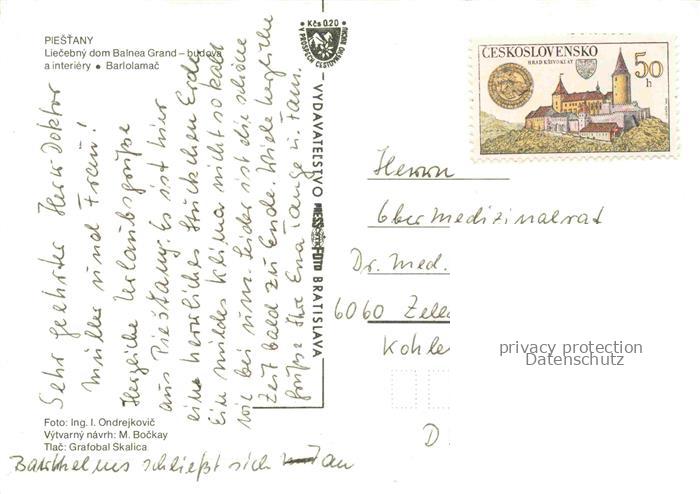 PIEŠŤANY
Liečebný dom Balnea Grand – budova
a interiéry • Barlolamač
Kčs 0.20
V PROSPECH CESTOVNÉHO RUCHU
ČESKOSLOVENSKO
HRAD KŘIVOKLÁT
50
h
Sehr geehrter Herr Doktor
Müller und Frau!
Herzliche Urlaubsgrüße
aus Pieštany. Es ist hier
eine herrliches Stückchen Erde
Ein mildes Klima nicht so kalt
wie bei uns. Leider ist die schöne
Zeit bald zu Ende. Viele herzliche
Grüße Ihre Ena Lange u. Fam.
VYDAVATEĽSTVO PRESSFOTO BRATISLAVA
Herrn
Obermedizinalrat
Dr. Med.
6060 Zella
Kohle
D
privacy protection
Datenschutz
Foto: Ing. I. Ondrejkovič
Výtvarný návrh: M. Bočkay
Tlač: Grafobal Skalica
Barthelmes schließt sich an